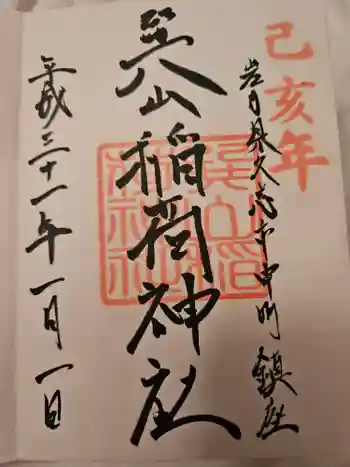 己亥年
岩手県久慈市中町鎮座
巽山稲荷神社
平成三十一年一月一日